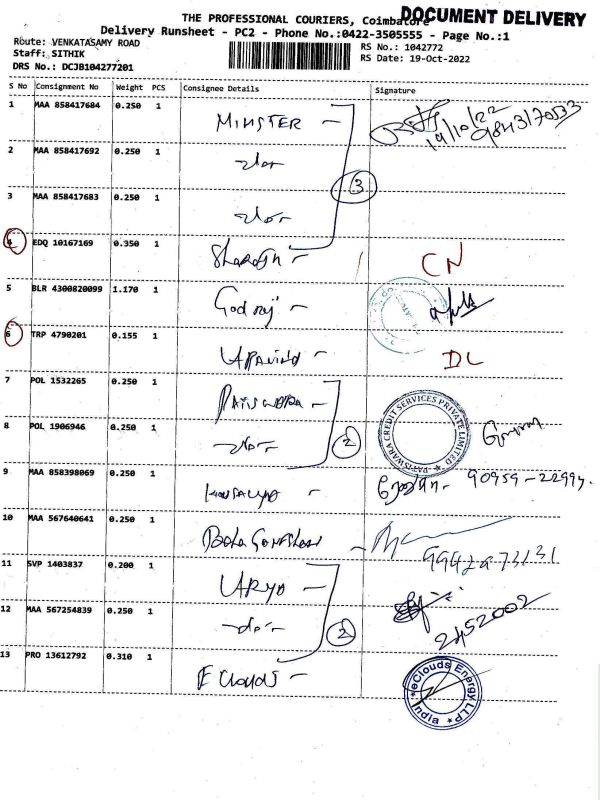 DOCUMENT DELIVERY
THE PROFESSIONAL COURIERS, Coimbatore
Delivery Runsheet - PC2 - Phone No.:0422-3505555 - Page No.:1
Route: VENKATASAMY ROAD
RS No.: 1042772
Staff: SITHIK
RS Date: 19-Oct-2022
DRS No.: DCJB104277201
S No Consignment No Weight PCS Consignee Details Signature
1 MAA 858417684 0.250 1 MINISTER -
19/10/22
9843170533
2 MAA 858417692 0.250 1
3
3 MAA 858417683 0.250 1
4 EDQ 10167169 0.350 1 CN
5 BLR 4300820099 1.170 1 Godraj -
6 TRP 4790201 0.155 1 DL
7 POL 1532265 0.250 1
PATISWARA CREDIT SERVICES PRIVATE LIMITED
8 POL 1906946 0.250 1 2
9 MAA 858398069 0.250 1
10 MAA 567640641 0.250 1
11 SVP 1403837 0.200 1 URYO -
12 MAA 567254839 0.250 1 2
2452002
13 PRO 13612792 0.310 1 E Clouds -
eClouds Energy LLP
India